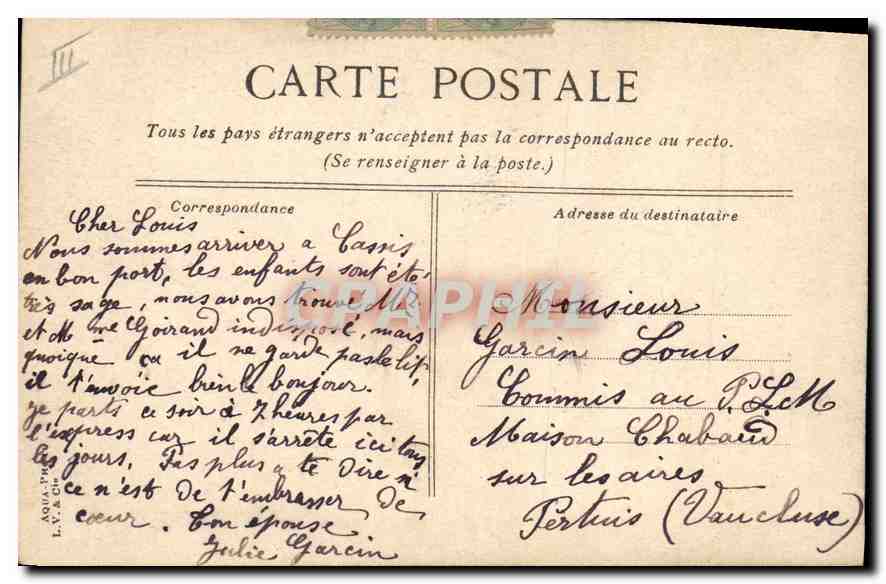 III
CARTE POSTALE
Tous les pays étrangers n'acceptent pas la correspondance au recto.
(Se renseigner à la poste.)
Correspondance
Cher Louis
Nous sommes arriver a Cassis
en bon port, les enfants sont été
très sage, nous avons trouve Mr
et Mme Goirand indisposé, mais
quoique ca il ne garde pas le lit,
il t'envoie bien le bonjour.
je parts ce soir à 7 heures par
l'express car il s'arrête ici tous
les jours. Pas plus a te dire si
ce n'est de t'embrasser de
cœur. Ton épouse
Julie Garcin
Adresse du destinataire
Monsieur
Garcin Louis
Commis au P.L.M
Maison Chabaud
sur les aires
Pertuis (Vaucluse)
AQUA-PH
L. V. & Cie
CPAPHIL